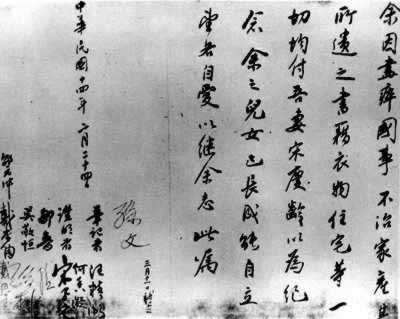 余因盡瘁國事不治家產其
所遺之書籍衣物住宅等一
切均付吾妻宋慶齡以為紀
念余之兒女已長成能自立
望各自愛以繼余志此囑
孫文
三月十一日補簽
中華民國十四年二月二十四
筆記者 汪精衛
證明者 宋子文
邵元冲
戴恩賽
吳敬恆
何香凝
鄒魯